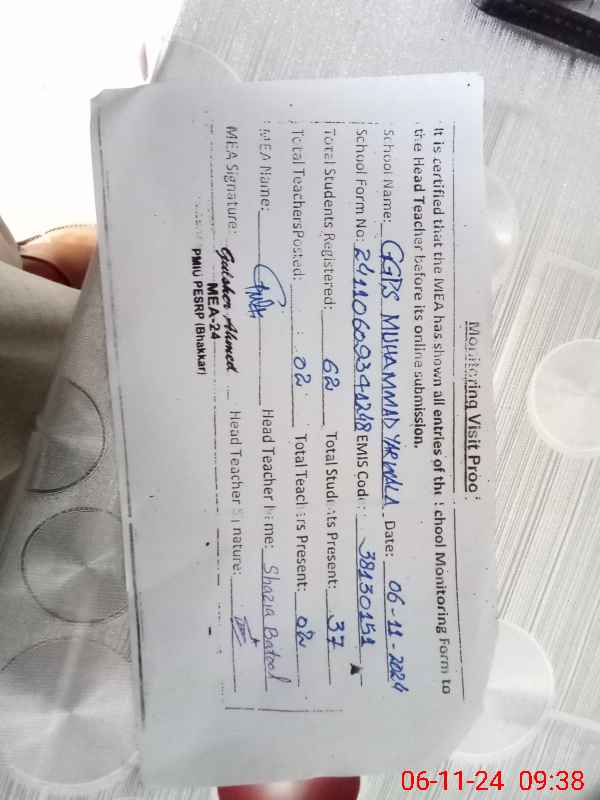 Monitoring Visit Proof
It is certified that the MEA has shown all entries of the School Monitoring Form to
the Head Teacher before its online submission.
School Name: GGPS MUHAMMAD YAR WALA Date: 06-11-2024
School Form No: EMIS Code: 38130151
Total Students Registered: 62 Total Students Present: 37
Total Teachers Posted: 02 Total Teachers Present: 02
MEA Name: Head Teacher Name: Shazia Batool
MEA Signature: Gulsher Ahmed Head Teacher Signature:
MEA-24
PMIU PESRP (Bhakkar)
06-11-24 09:38